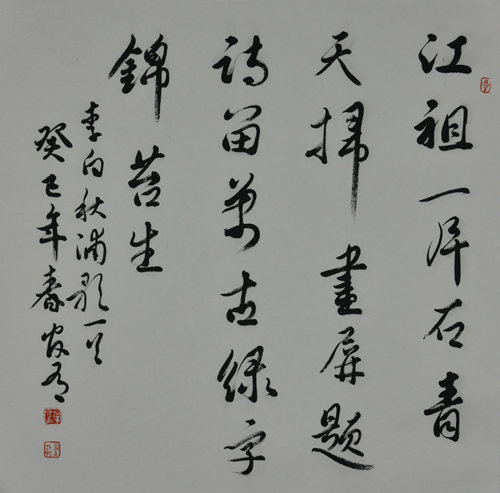 江祖一片石青
天掃畫屏題
詩留萬古綠字
錦苔生
李白秋浦歌一首
癸巳年春